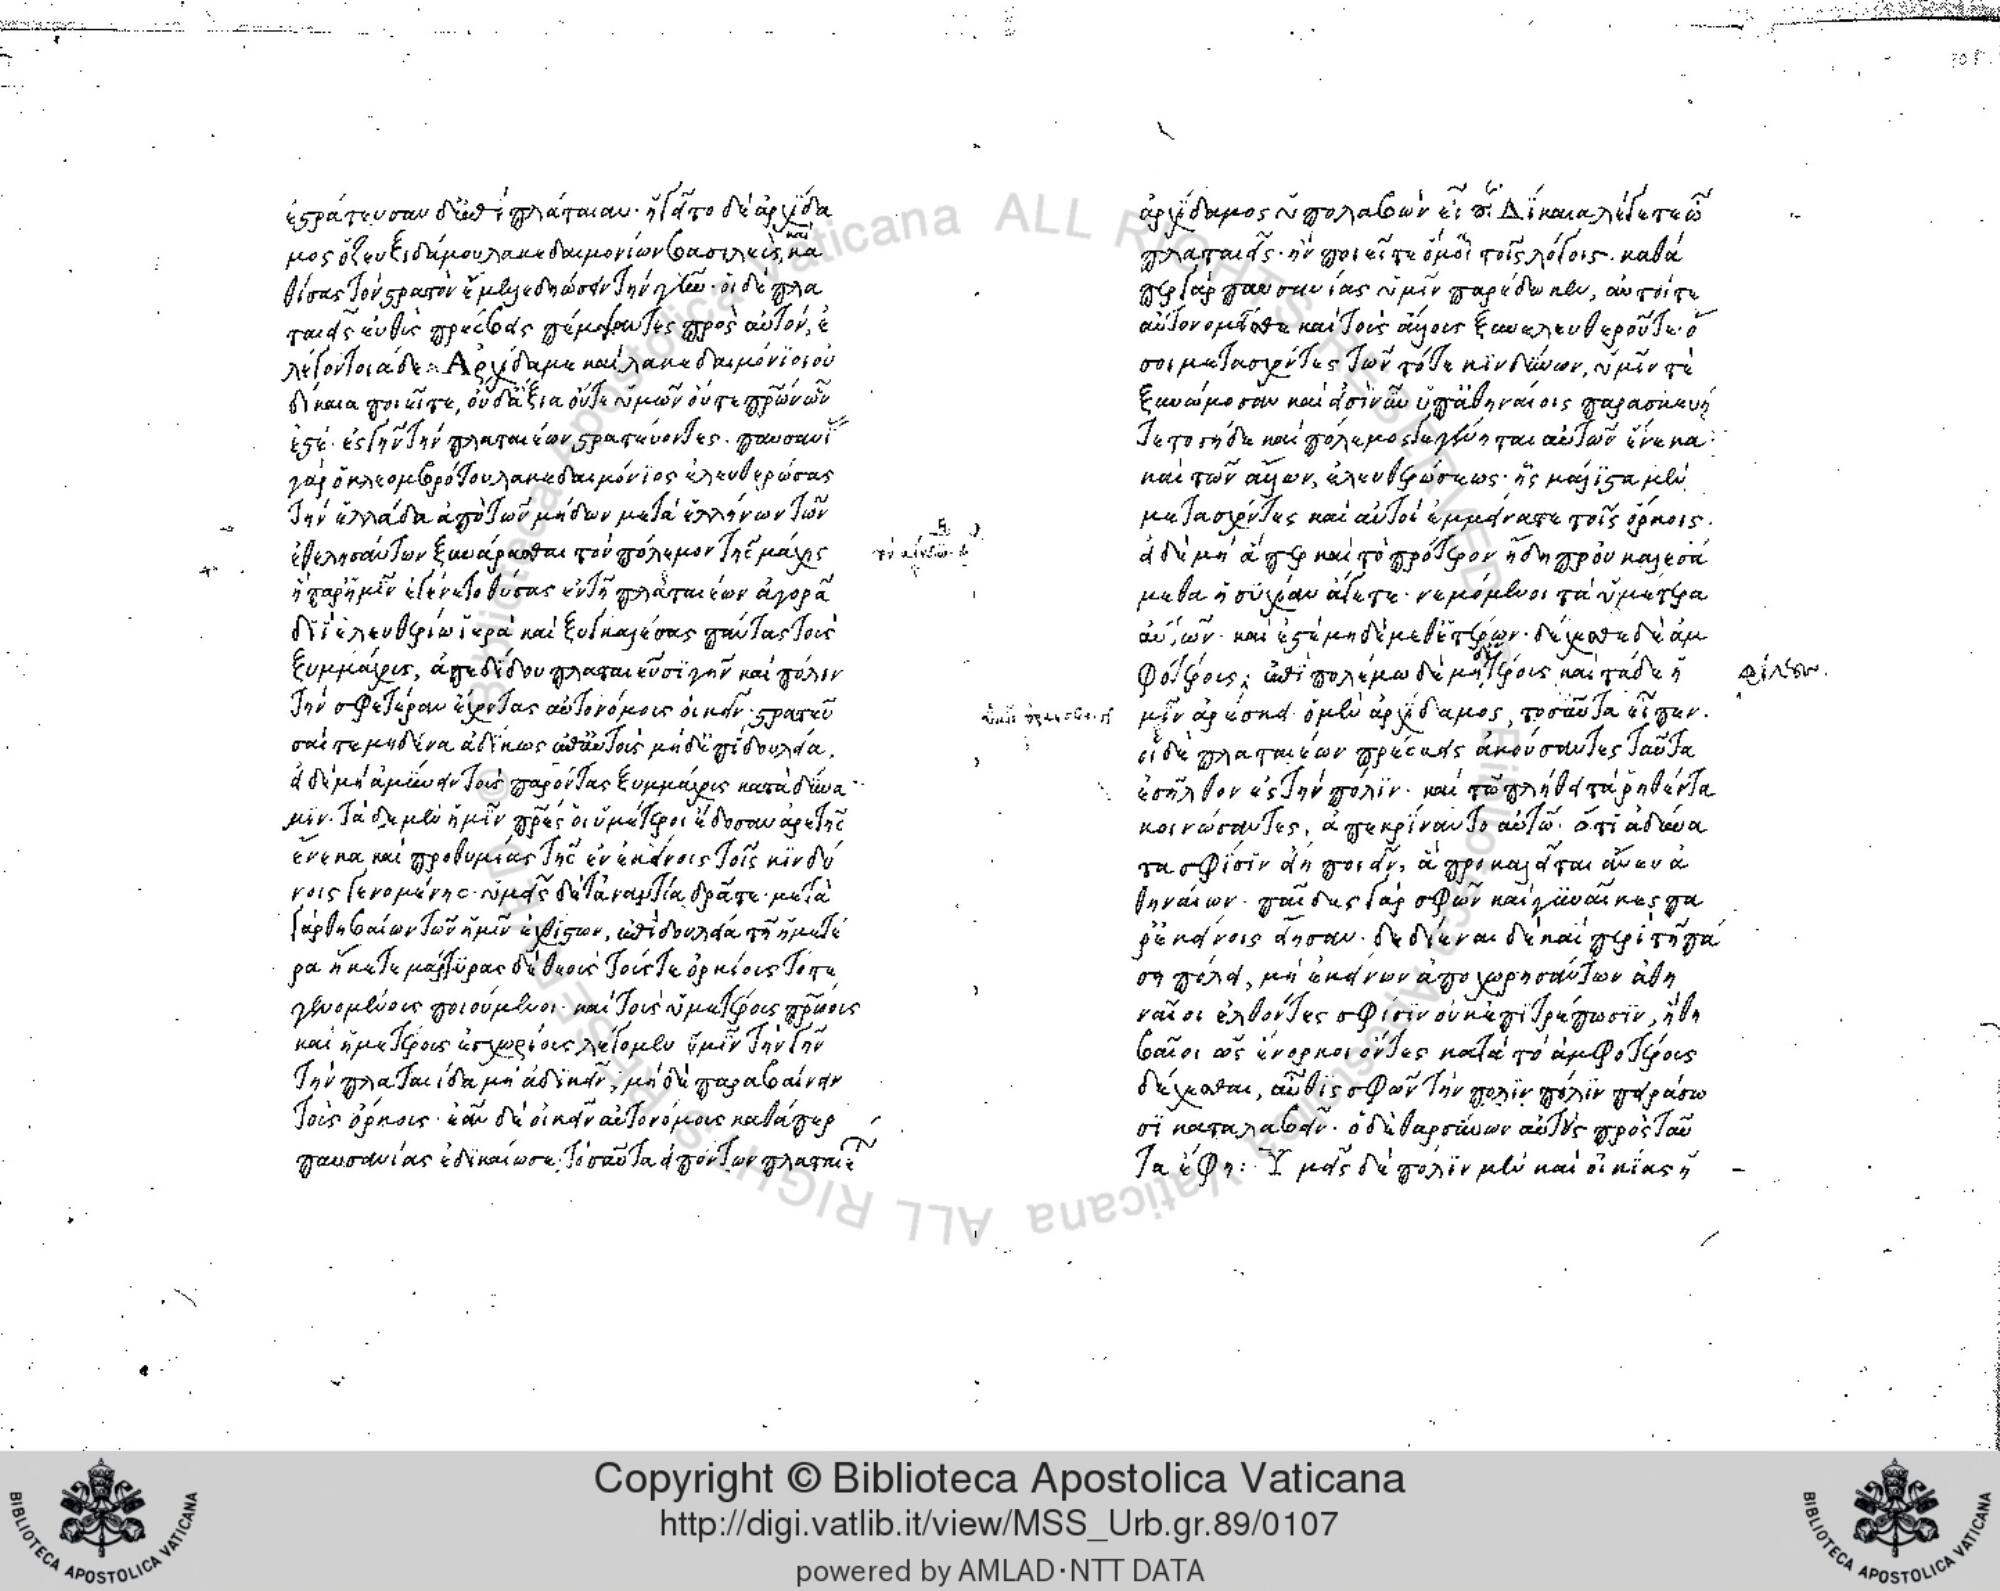 ἐστράτευσαν δὲ ἐπὶ πλάταιαν· ἡγεῖτο δὲ ἀρχίδα
μος ὁ ζευξιδάμου λακεδαιμονίων βασιλεύς, καὶ κα
θίσας τὸν στρατὸν ἔμελλε δηώσειν τὴν γῆν· οἱ δὲ πλα
ταιεῖς εὐθὺς πρέσβεις πέμψαντες πρὸς αὐτόν, ἔ
λεγον τοιάδε· Ἀρχίδαμε καὶ λακεδαιμόνιοι οὐ
δίκαια ποιεῖτε, οὐδ' ἄξια οὔτε ὑμῶν οὔτε πρῶν ὧν
ἐστέ· ἐς γῆν τὴν πλαταιέων στρατεύοντες· παυσανί
γὰρ ὁ κλεομβρότου λακεδαιμόνιος ἐλευθερώσας
τὴν ἑλλάδα ἀπὸ τῶν μήδων μετὰ ἑλλήνων τῶν
ἐθελησάντων ξυνάρασθαι τὸν πόλεμον τῆς μάχης
ἣ παρ' ἡμῖν ἐγένετο θύσας ἐν τῇ πλαταιέων ἀγορᾶ
διῒ ἐλευθερίω ἱερὰ καὶ ξυγκαλέσας πάντας τοὺς
ξυμμάχους, ἀπεδίδου πλαταιεῦσι γῆν καὶ πόλιν
τὴν σφετέραν ἔχοντας αὐτονόμους οἰκεῖν· στρατεῦ
σαί τε μηδένα ἀδίκως ἐπ' αὐτοὺς μηδ' ἐπὶ δουλεία,
εἰ δὲ μὴ ἀμύνειν τοὺς παρόντας ξυμμάχους κατὰ δύνα
μιν· τάδε μὲν ἡμῖν πρες οἱ ὑμέτεροι ἔδοσαν ἀρετῆς
ἕνεκα καὶ προθυμίας τῆς ἐν ἐκείνοις τοῖς κινδύ
νοις γενομένης· ὑμεῖς δὲ τἀναντία δρᾶτε· μετὰ
γὰρ θηβαίων τῶν ἡμῖν ἐχθίστων, ἐπὶ δουλεία τῇ ἡμετέ
ρα ἥκετε μάρτυρας δὲ θεοὺς τούς τε ὁρκίους τότε
γενομένους ποιούμενοι· καὶ τοὺς ὑμετέρους πρώους
καὶ ἡμετέρους ἐγχωρίους λέγομεν ὑμῖν τὴν γῆν
τὴν πλαταιίδα μὴ ἀδικεῖν, μηδὲ παραβαίνειν
τοὺς ὅρκους· ἐᾶν δὲ οἰκεῖν αὐτονόμους καθάπερ
παυσανίας ἐδικαίωσε· τοσαῦτα εἰπόντων πλαταιέ
ἀρχίδαμος ὑπολαβὼν εἶπεν· Δίκαια λέγετε ὦ
πλαταιεῖς· ἢν ποιεῖτε ὅμοια τοῖς λόγοις· καθά
περ γὰρ παυσανίας ὑμῖν παρέδωκεν, αὐτοί τε
αὐτονομεῖσθε καὶ τοὺς ἄλλους ξυνελευθεροῦτε· ὅ
σοι μετασχόντες τῶν τότε κινδύνων, ὑμῖν τὲ
ξυνώμοσαν καὶ εἰσὶ νῦν ὑπ' ἀθηναίοις παρασκευή
τε τοσήδε καὶ πόλεμος γεγένηται αὐτῶν ἕνεκα
καὶ τῶν ἄλλων, ἐλευθερώσεως· ἧς μάλιστα μὲν
μετασχόντες καὶ αὐτοὶ ἐμμείνατε τοῖς ὅρκοις·
εἰ δὲ μή ἅπερ καὶ τὸ πρότερον ἤδη προὐκαλεσά
μεθα ἡσυχίαν ἄγετε· νεμόμενοι τὰ ὑμέτερα
αὐτῶν· καὶ ἐστὲ μηδὲ μεθ' ἑτέρων· δέχεσθε δὲ ἀμ
φοτέρους, ἐπὶ πολέμω δὲ μηδετέρους καὶ τάδε ἡ
φίλους
μῖν ἀρκέσει· ὁ μὲν ἀρχίδαμος τοσαῦτα εἶπεν·
οἱ δὲ πλαταιέων πρέσβεις ἀκούσαντες ταῦτα
ἐσῆλθον ἐς τὴν πόλιν· καὶ τῷ πλήθει τὰ ῥηθέντα
κοινώσαντες, ἀπεκρίναντο αὐτῷ· ὅτι ἀδύνα
τα σφίσιν εἴη ποιεῖν, ἃ προκαλεῖται ἄνευ ἀ
θηναίων· παῖδες γὰρ σφῶν καὶ γυναῖκες πα
ρ' ἐκείνοις εἴησαν· δεδιέναι δὲ καὶ περὶ τῇ πά
ση πόλει, μὴ ἐκείνων ἀποχωρησάντων ἀθη
ναῖοι ἐλθόντες σφίσιν οὐκ ἐπιτρέπωσιν, ἢ θη
βαῖοι ὡς ἔνορκοι ὄντες κατὰ τὸ ἀμφοτέρους
δέχεσθαι, αὖθις σφῶν τὴν πόλιν πόλιν πειράσω
σι καταλαβεῖν· ὁ δὲ θαρσύνων αὐτοὺς πρὸς ταῦ
τα ἔφη: Ὑμεῖς δὲ πόλιν μὲν καὶ οἰκίας ἡ
Copyright © Biblioteca Apostolica Vaticana
http://digi.vatlib.it/view/MSS_Urb.gr.89/0107
powered by AMLAD·NTT DATA
BIBLIOTECA APOSTOLICA VATICANA
BIBLIOTECA APOSTOLICA VATICANA